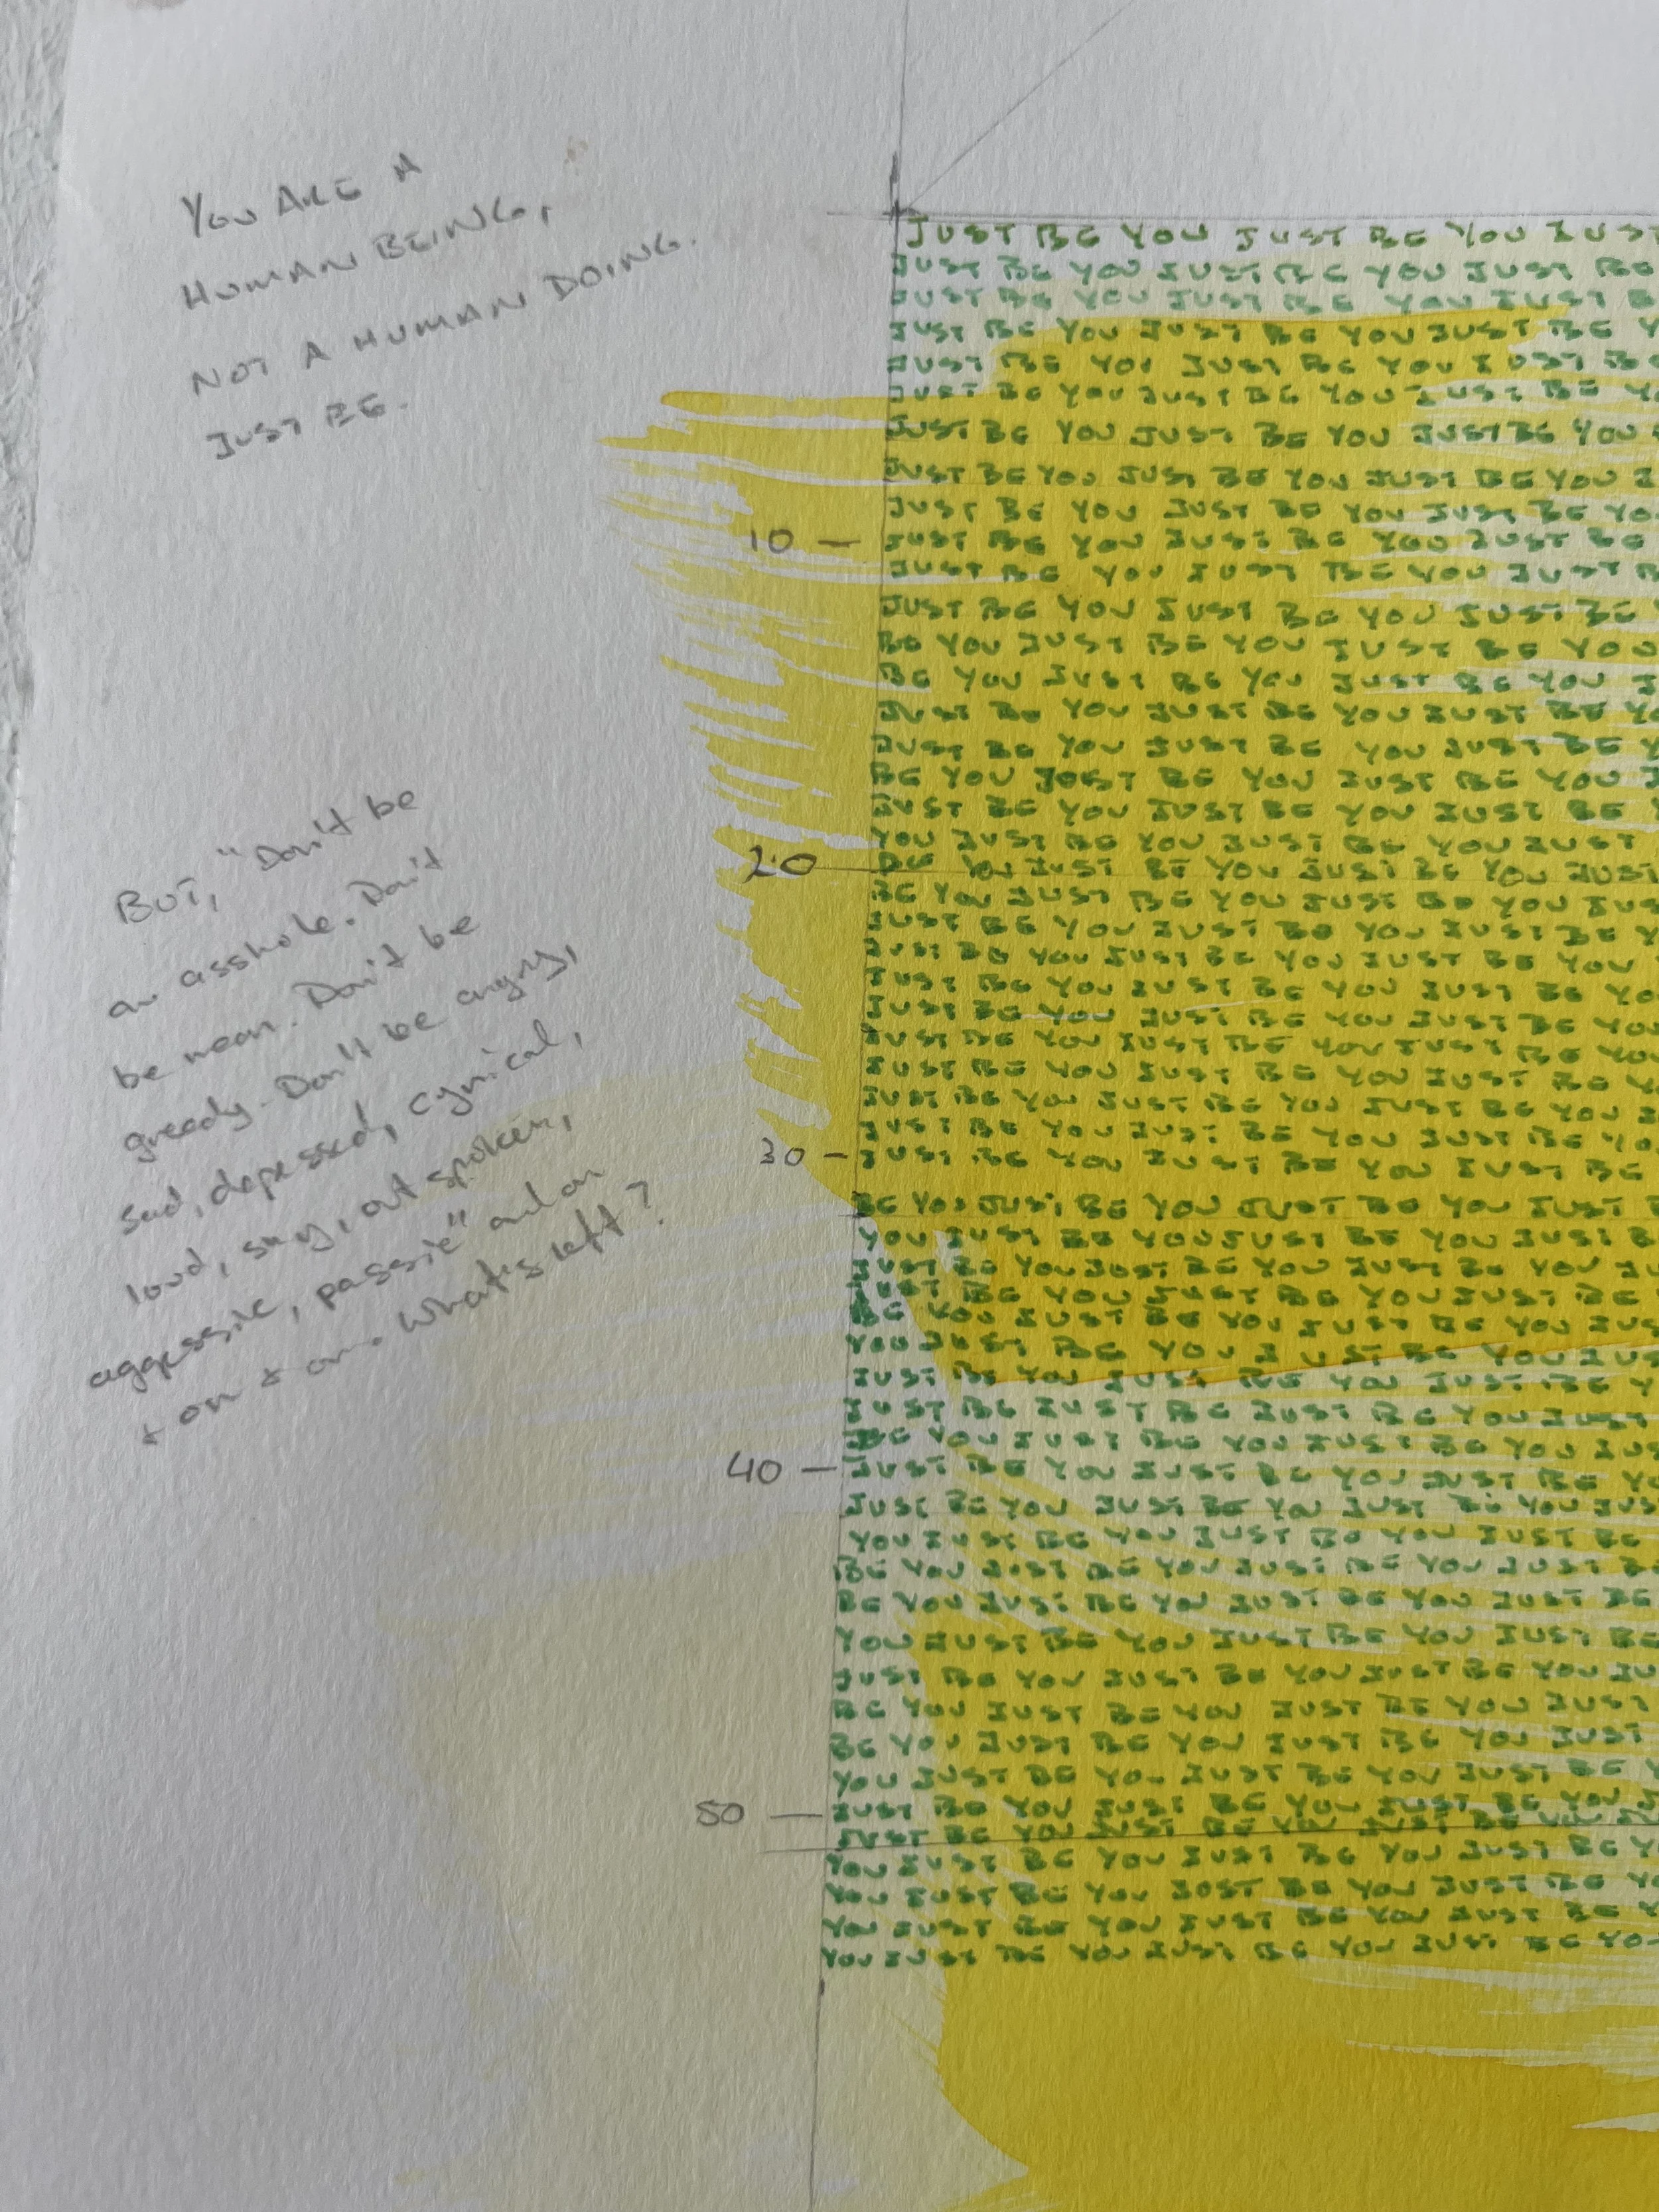 YOU ARE A
HUMAN BEING,
NOT A HUMAN DOING.
JUST BE.
BUT, "Don't be
an asshole. Don't
be mean. Don't be
greedy. Don't be angry,
sad, depressed, cynical,
loud, shy, out spoken,
aggressive, passive" and on
+ on + on. What's left?
JUST BE YOU JUST BE YOU JUST
JUST BE YOU JUST BE YOU JUST BE
JUST BE YOU JUST BE YOU JUST B
JUST BE YOU JUST BE YOU JUST BE Y
JUST BE YOU JUST BE YOU JUST BE
JUST BE YOU JUST BE YOU JUST BE YO
JUST BE YOU JUST BE YOU JUST BE YOU
JUST BE YOU JUST BE YOU JUST BE YOU J
JUST BE YOU JUST BE YOU JUST BE YO
10 – JUST BE YOU JUST BE YOU JUST BE
JUST BE YOU JUST BE YOU JUST B
JUST BE YOU JUST BE YOU JUST BE
BE YOU JUST BE YOU JUST BE YOU
BE YOU JUST BE YOU JUST BE YOU J
JUST BE YOU JUST BE YOU JUST BE YO
JUST BE YOU JUST BE YOU JUST BE Y
BE YOU JUST BE YOU JUST BE YOU J
JUST BE YOU JUST BE YOU JUST BE Y
YOU JUST BE YOU JUST BE YOU JUST
20 – BE YOU JUST BE YOU JUST BE YOU JUST
BE YOU JUST BE YOU JUST BE YOU JUS
JUST BE YOU JUST BE YOU JUST BE Y
JUST BE YOU JUST BE YOU JUST BE YOU
JUST BE YOU JUST BE YOU JUST BE YO
JUST BE YOU JUST BE YOU JUST BE YOU
JUST BE YOU JUST BE YOU JUST BE YOU
JUST BE YOU JUST BE YOU JUST BE Y
JUST BE YOU JUST BE YOU JUST BE YOU J
JUST BE YOU JUST BE YOU JUST BE YO
30 – JUST BE YOU JUST BE YOU JUST BE
BE YOU JUST BE YOU JUST BE YOU JUST B
YOU JUST BE YOU JUST BE YOU JUST B
JUST BE YOU JUST BE YOU JUST BE YOU JU
JUST BE YOU JUST BE YOU JUST BE
BE YOU JUST BE YOU JUST BE YOU JUS
YOU JUST BE YOU JUST BE YOU JUS
JUST BE YOU JUST BE YOU JUST BE Y
JUST BE JUST BE JUST BE YOU JUST
BE YOU JUST BE YOU JUST BE YOU JUS
40 – JUST BE YOU JUST BE YOU JUST BE YO
JUST BE YOU JUST BE YOU JUST BE YOU JUS
YOU JUST BE YOU JUST BE YOU JUST BE
BE YOU JUST BE YOU JUST BE YOU JUST B
BE YOU JUST BE YOU JUST BE YOU JUST BE
YOU JUST BE YOU JUST BE YOU JUST BE
JUST BE YOU JUST BE YOU JUST BE YOU JU
BE YOU JUST BE YOU JUST BE YOU JUST
BE YOU JUST BE YOU JUST BE YOU JUST
YOU JUST BE YOU JUST BE YOU JUST BE Y
50 – JUST BE YOU JUST BE YOU JUST BE YOU J
JUST BE YOU JUST BE YOU JUST BE YOU JU
YOU JUST BE YOU JUST BE YOU JUST BE Y
YOU JUST BE YOU JUST BE YOU JUST BE YO
YOU JUST BE YOU JUST BE YOU JUST BE Y
YOU JUST BE YOU JUST BE YOU JUST BE YO